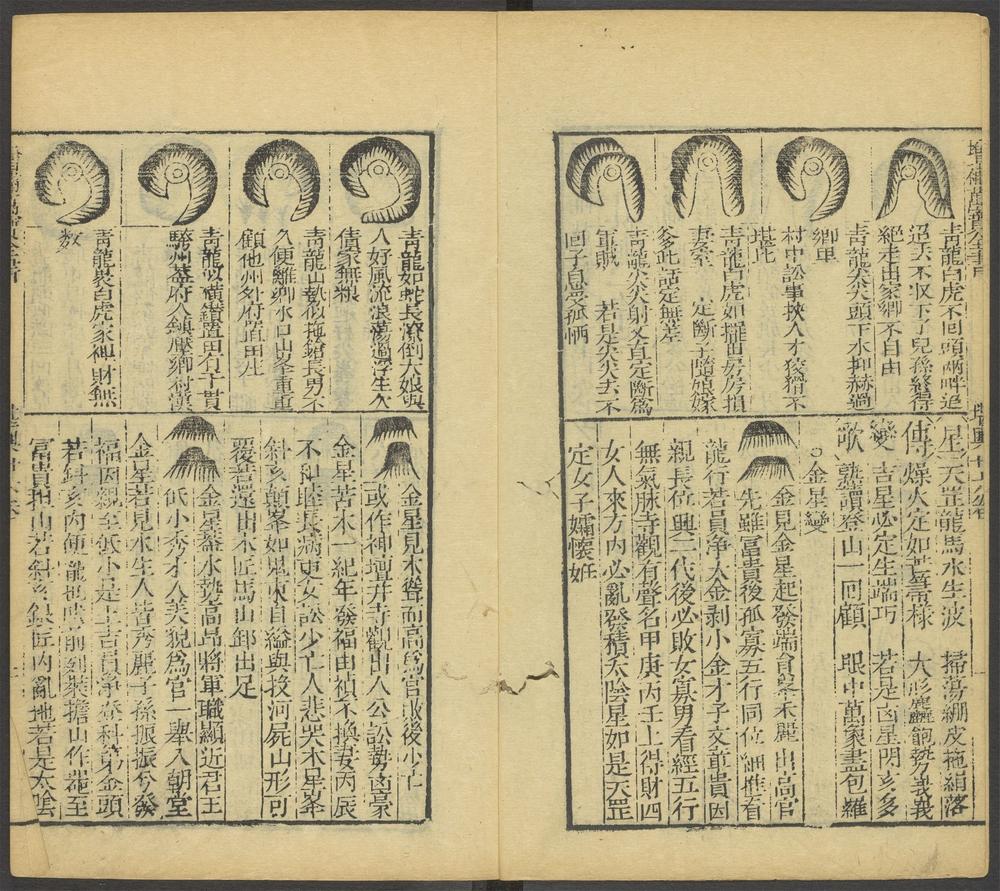 青龍白虎不回頭兩畔追
迢去不收下了兒孫終得
絶走出家鄉不自由
青龍尖尖頭下水抑赫過
鄉里
村中訟事挾人才狡猾不
堪此
青龍白虎如擺出房房損
妻客 定斷子隨娘嫁
爹此話定無差
青龍尖尖射父身定斷為
軍賊 若是尖尖去不
回子息受孤恓
星天罡龍馬水生波 掃蕩綳皮拖絹落
傳燥火定如
變 吉星必定生端巧 若是凶星閃亥多
歌 熟讀登山一回顧 眼中萬象盡包羅
○金星變
金見金星起發端會挙禾麗出高官
先雖富貴後孤寡五行同位細推看
龍行若員淨大金剥小金才子文章貴因
親長位興二代後必敗女寡男看經五行
無氣脉寺觀有聲名甲庚丙壬上得財四
女人來方內必亂發積太陰星如是天罡
定女子孀懷妊
青龍如蛇長潦倒大娘與
人好風流浪蕩過浮生久
債家無粮
青龍山勢似拖鎗長男不
久便離鄉水口山峯重重
顧他州外府置田庄
青龍似橫鑽置田有千貫
驕州蓋府人鎮壓鄉村漢
青龍裹白虎家禆財無
数
金星見木聳而高為官敗後少亡
或作神壇并寺觀出人公訟勢凶豪
金星苦木一紀年發福由禎不換妻丙辰
不和睦長病更女訟少亡人悲哭木星峯
斜亥顛峯如鬼東自縊與投河屍山形可
覆著還出木匠馬山卸出足
金星蓋水勢高昂將軍職顯近君王
低小秀才人美貌為官一舉入朝堂
金星若見水生人皆秀麗子孫振振兮發
福因親至低小是上吉員淨登科第金頭
若斜亥內便 前到裝擔山作器至
富貴担山若斜亥銀匠內亂地若是太陰